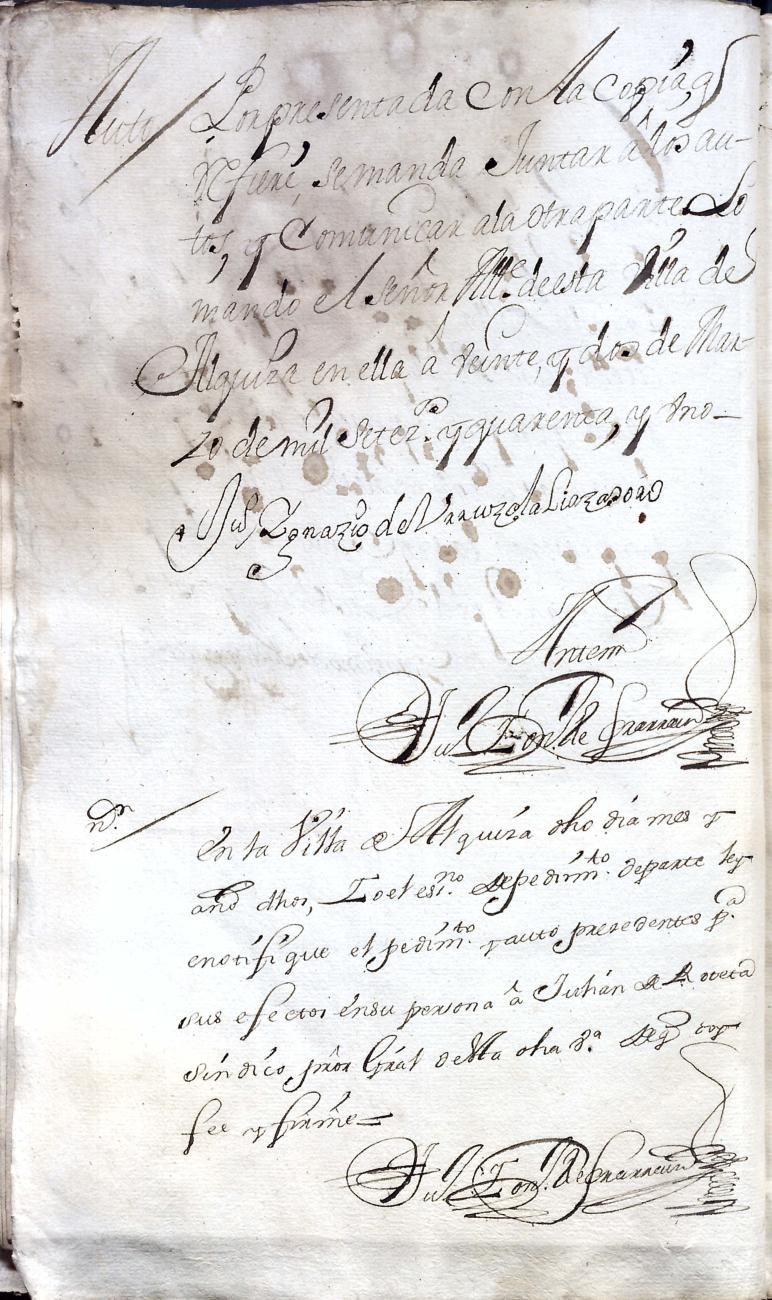 Auto / Por presentada con la copia, q̃
refiere, se manda Juntar a los au-
tos, y Comunicar a la otra parte Lo
mando el señor Allᵉ de esta Villa de
Alquiza en ella â veinte, y dos de Mar-
zo de mil setezˢ. y quarenta, y uno —
Juº Ygnazio de Urruzola Liozadoro
Antemi
Juº
nⁿ / en la Villa de Alquiza dho dia mes y
año dhos, Yo el esⁿº. de pedimᵗº. de parte ley
e notifique el pedimᵗº. y auto precedentes pª.
sus efectos en su persona â Julián de Roteta
sindico, prōr Grāl de ella dha vª de q̃ doy
fee y firmé =
Juº